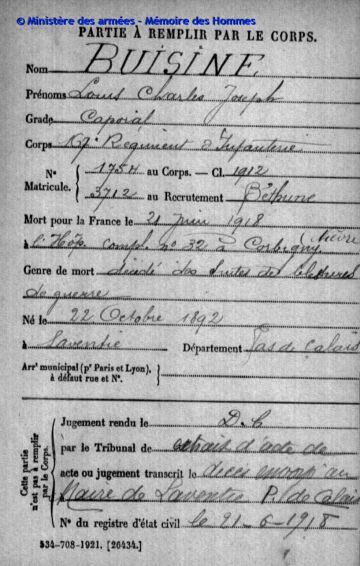 © Ministère des armées - Mémoire des Hommes
PARTIE À REMPLIR PAR LE CORPS.
Nom BUISINE
Prénoms Louis Charles Joseph
Grade Caporal
Corps Régiment d'Infanterie
N° 1754 au Corps. — Cl. 1912
Matricule. 3712 au Recrutement Béthune
Mort pour la France le 21 juin 1918
à l'Hôp. compl. n° 32 à Corbigny (Nièvre
Genre de mort décédé des suites de blessures
de guerre
Né le 22 Octobre 1892
à Laventie Département Pas de Calais
Arr' municipal (p' Paris et Lyon),
à défaut rue et N°.
Cette partie
n'est pas à remplir
par le Corps.
Jugement rendu le D.C
par le Tribunal de extrait d'acte de
acte ou jugement transcrit le décès envoyé au
Maire de Laventie P. de Calais
N° du registre d'état civil le 21-6-1918
534-708-1921. [26434.]